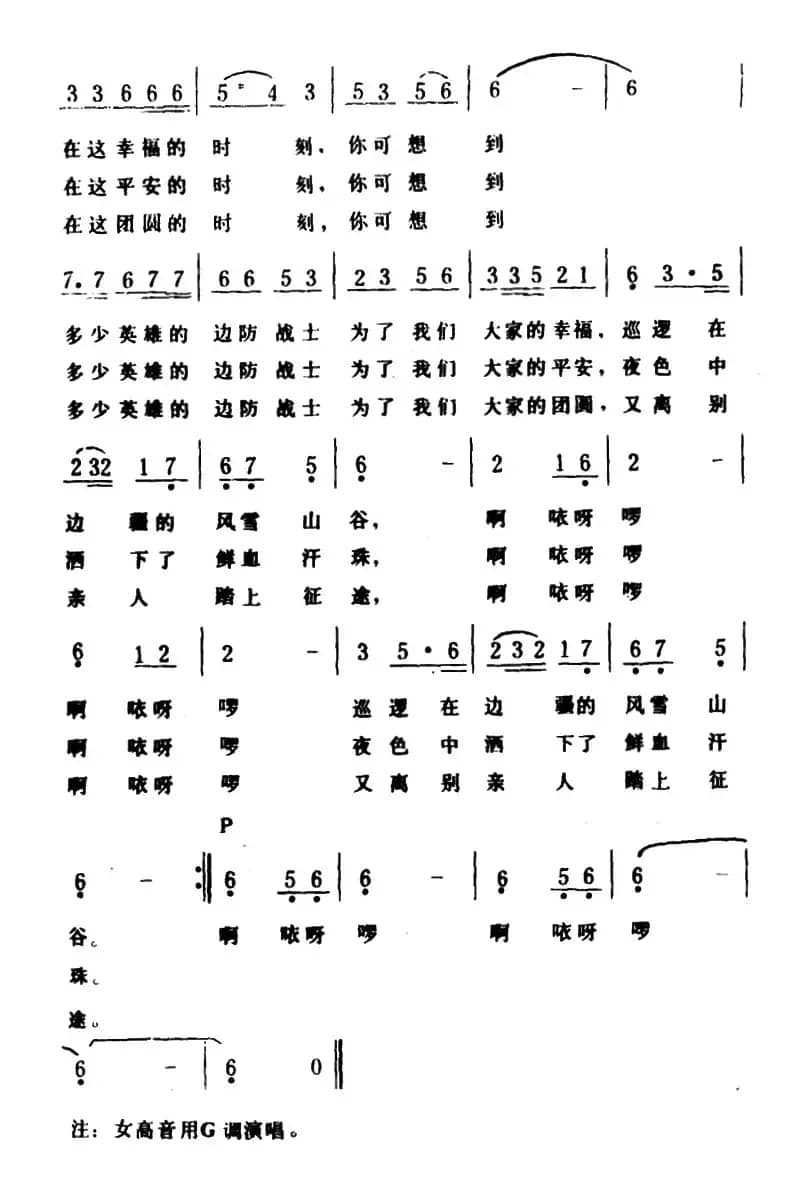 3 3 6 6 6 | 5 #4 3 | 5 3 5 6 | 6 - | 6
在这幸福的 时 刻，你可想 到
在这平安的 时 刻，你可想 到
在这团圆的 时 刻，你可想 到
7. 7 6 7 7 | 6 6 5 3 | 2 3 5 6 | 3 3 5 2 1 | 6 3 · 5
多少英雄的 边防战士 为了我们 大家的幸福，巡逻在
多少英雄的 边防战士 为了我们 大家的平安，夜色中
多少英雄的 边防战士 为了我们 大家的团圆，又离别
2 3 2 1 7 | 6 7 5 | 6 - | 2 1 6 | 2 -
边 疆的 风雪山谷， 啊 咴呀 啰
洒 下了 鲜血汗珠， 啊 咴呀 啰
亲 人 踏上征途， 啊 咴呀 啰
6 1 2 | 2 - | 3 5 · 6 | 2 3 2 1 7 | 6 7 5
啊 咴呀 啰 巡 逻在 边 疆的 风雪山
啊 咴呀 啰 夜 色中 洒 下了 鲜血汗
啊 咴呀 啰 又 离别 亲 人 踏上征
P
6 - :‖ 6 5 6 | 6 - | 6 5 6 | 6
谷。 啊 咴呀 啰 啊 咴呀 啰
珠。
途。
6 - | 6 0 ‖
注：女高音用G 调演唱。